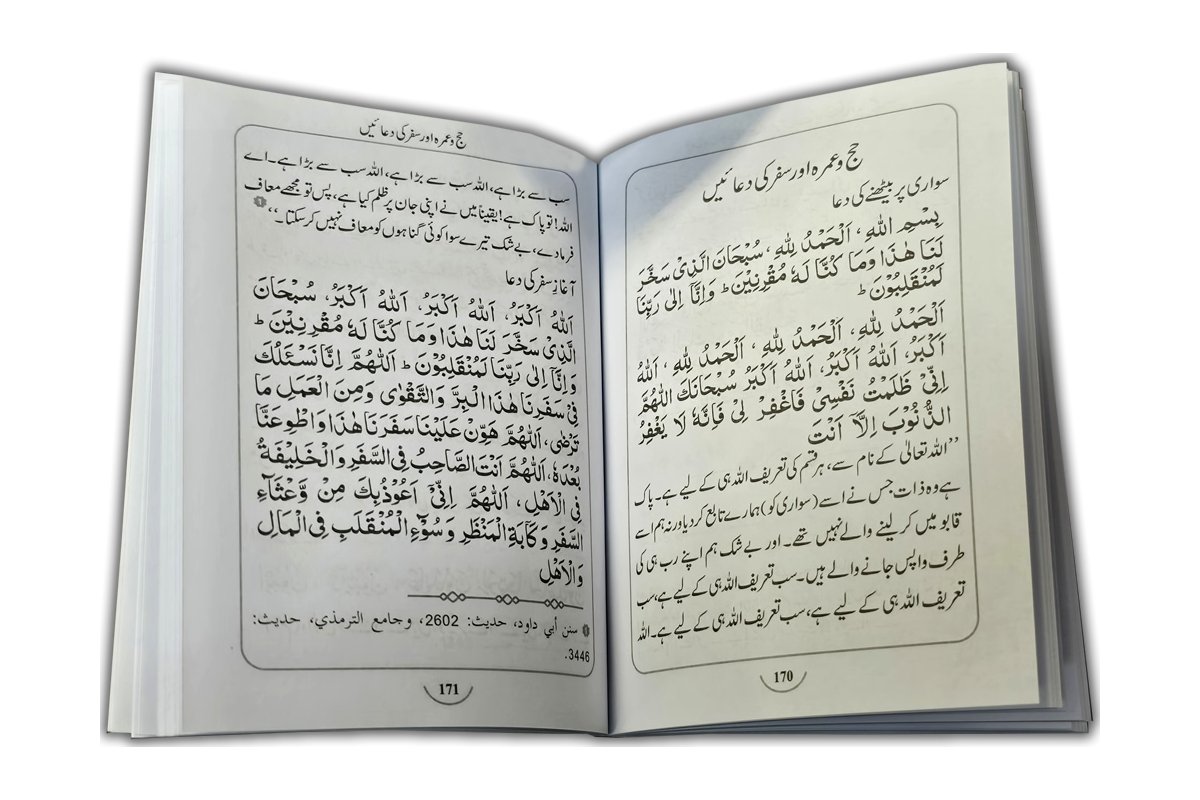 حج و عمرہ اور سفر کی دعائیں
سواری پر بیٹھنے کی دعا
بِسْمِ اللهِ، اَلْحَمْدُ لِلهِ، سُبْحَانَ الَّذِیْ سَخَّرَ
لَنَا هٰذَا وَمَا كُنَّا لَهٗ مُقْرِنِيْنَ ؕ وَاِنَّا اِلٰى رَبِّنَا
لَمُنْقَلِبُوْنَ ؕ
اَلْحَمْدُ لِلهِ، اَلْحَمْدُ لِلهِ، اَلْحَمْدُ لِلهِ، اَللهُ
اَكْبَرُ، اَللهُ اَكْبَرُ، اَللهُ اَكْبَرُ سُبْحَانَكَ اللّٰهُمَّ
اِنِّيْ ظَلَمْتُ نَفْسِيْ فَاغْفِرْ لِيْ فَاِنَّهٗ لَا يَغْفِرُ
الذُّنُوْبَ اِلَّا اَنْتَ
’’اللہ تعالیٰ کے نام سے، ہر قسم کی تعریف اللہ ہی کے لیے ہے۔ پاک
ہے وہ ذات جس نے اسے (سواری کو) ہمارے تابع کر دیا ورنہ ہم اسے
قابو میں کر لینے والے نہیں تھے۔ اور بے شک ہم اپنے رب ہی کی
طرف واپس جانے والے ہیں۔ سب تعریف اللہ ہی کے لیے ہے، سب
تعریف اللہ ہی کے لیے ہے، سب تعریف اللہ ہی کے لیے ہے۔ اللہ
170
حج و عمرہ اور سفر کی دعائیں
سب سے بڑا ہے، اللہ سب سے بڑا ہے، اللہ سب سے بڑا ہے۔ اے
اللہ! تو پاک ہے! یقیناً میں نے اپنی جان پر ظلم کیا ہے، پس تو مجھے معاف
فرما دے، بے شک تیرے سوا کوئی گناہوں کو معاف نہیں کر سکتا۔‘‘ ①
آغازِ سفر کی دعا
اَللهُ اَكْبَرُ، اَللهُ اَكْبَرُ، اَللهُ اَكْبَرُ، سُبْحَانَ
الَّذِيْ سَخَّرَ لَنَا هٰذَا وَمَا كُنَّا لَهٗ مُقْرِنِيْنَ ؕ
وَاِنَّا اِلٰى رَبِّنَا لَمُنْقَلِبُوْنَ ؕ اَللّٰهُمَّ اِنَّا نَسْئَلُكَ
فِيْ سَفَرِنَا هٰذَا الْبِرَّ وَالتَّقْوٰى وَمِنَ الْعَمَلِ مَا
تَرْضٰى، اَللّٰهُمَّ هَوِّنْ عَلَيْنَا سَفَرَنَا هٰذَا وَاطْوِعَنَّا
بُعْدَهٗ، اَللّٰهُمَّ اَنْتَ الصَّاحِبُ فِي السَّفَرِ وَالْخَلِيْفَةُ
فِي الْاَهْلِ، اَللّٰهُمَّ اِنِّيْٓ اَعُوْذُبِكَ مِنْ وَّعْثَآءِ
السَّفَرِ وَكَآبَةِ الْمَنْظَرِ وَسُوْٓءِ الْمُنْقَلَبِ فِي الْمَالِ
وَالْاَهْلِ
① سنن أبي داود، حديث: 2602، وجامع الترمذي، حديث:
3446.
171